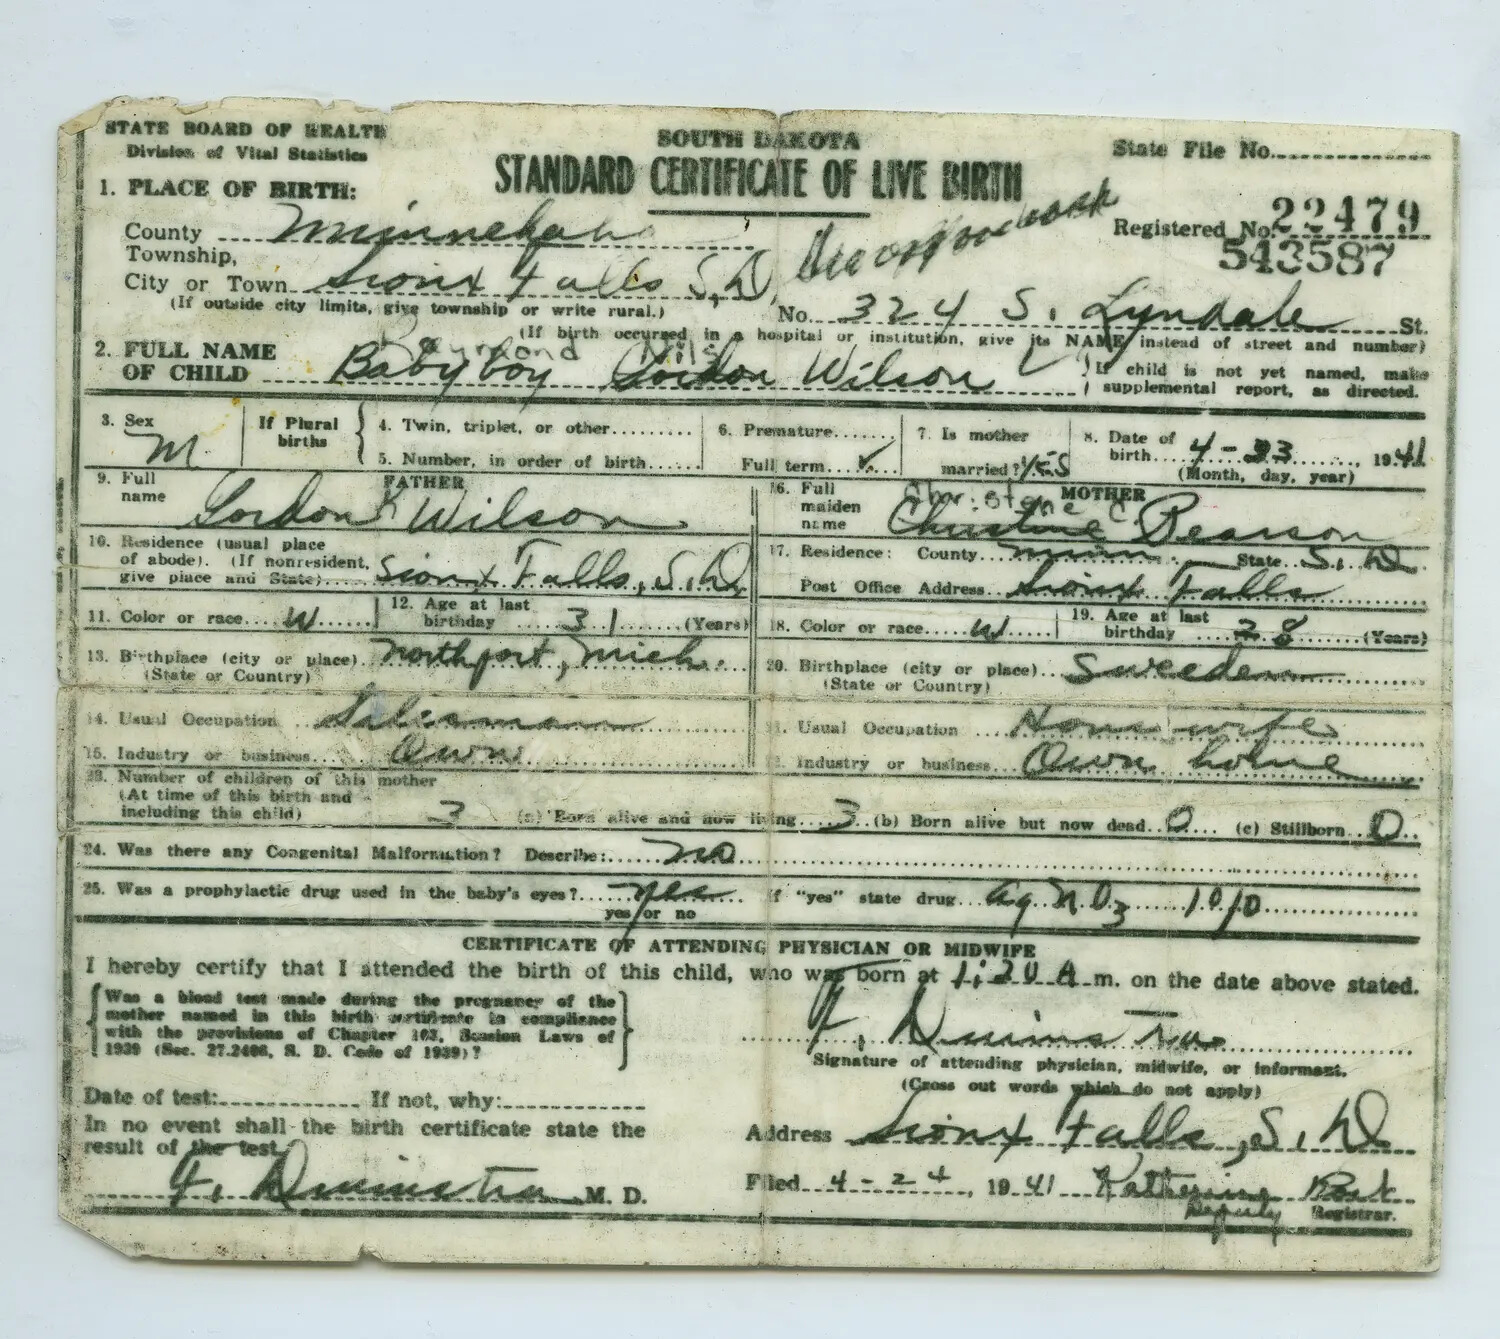 STATE BOARD OF HEALTH
Division of Vital Statistics
SOUTH DAKOTA
STANDARD CERTIFICATE OF LIVE BIRTH
State File No.
Registered No. 22479
543587
1. PLACE OF BIRTH:
County Minnehaha
Township,
City or Town Sioux Falls S.D.
(If outside city limits, give township or write rural.)
No. 324 S. Lyndale St.
(If birth occurred in a hospital or institution, give its NAME instead of street and number)
2. FULL NAME OF CHILD Raymond Nils
Baby boy Gordon Wilson
{If child is not yet named, make supplemental report, as directed.
3. Sex M
If Plural births
4. Twin, triplet, or other
5. Number, in order of birth
6. Premature
Full term ✓
7. Is mother married? YES
8. Date of birth 4-23, 1941
(Month, day, year)
FATHER
9. Full name Gordon K Wilson
10. Residence (usual place of abode). (If nonresident, give place and State) Sioux Falls, S.D.
11. Color or race W
12. Age at last birthday 31 (Years)
13. Birthplace (city or place) Northport, Mich.
(State or Country)
14. Usual Occupation Salesman
15. Industry or business Own
MOTHER
16. Full maiden name Christine Pearson
17. Residence: County Minn. State S.D.
Post Office Address Sioux Falls
18. Color or race W
19. Age at last birthday 28 (Years)
20. Birthplace (city or place) Sweeden
(State or Country)
Usual Occupation House wife
Industry or business Own home
23. Number of children of this mother
(At time of this birth and including this child) 3 (a) Born alive and now living 3 (b) Born alive but now dead 0 (c) Stillborn 0
24. Was there any Congenital Malformation? Describe: no
25. Was a prophylactic drug used in the baby's eyes? yes If "yes" state drug Ag NO3 1%
yes or no
CERTIFICATE OF ATTENDING PHYSICIAN OR MIDWIFE
I hereby certify that I attended the birth of this child, who was born at 1:20 A.m. on the date above stated.
{Was a blood test made during the pregnancy of the mother named in this birth certificate in compliance with the provisions of Chapter 103, Session Laws of 1939 (Sec. 27.2406, S. D. Code of 1939)?}
Signature of attending physician, midwife, or informant.
(Cross out words which do not apply)
Date of test: If not, why:
In no event shall the birth certificate state the result of the test.
M. D.
Address Sioux Falls, S.D.
Filed 4-24, 1941 Katherine
Deputy Registrar.